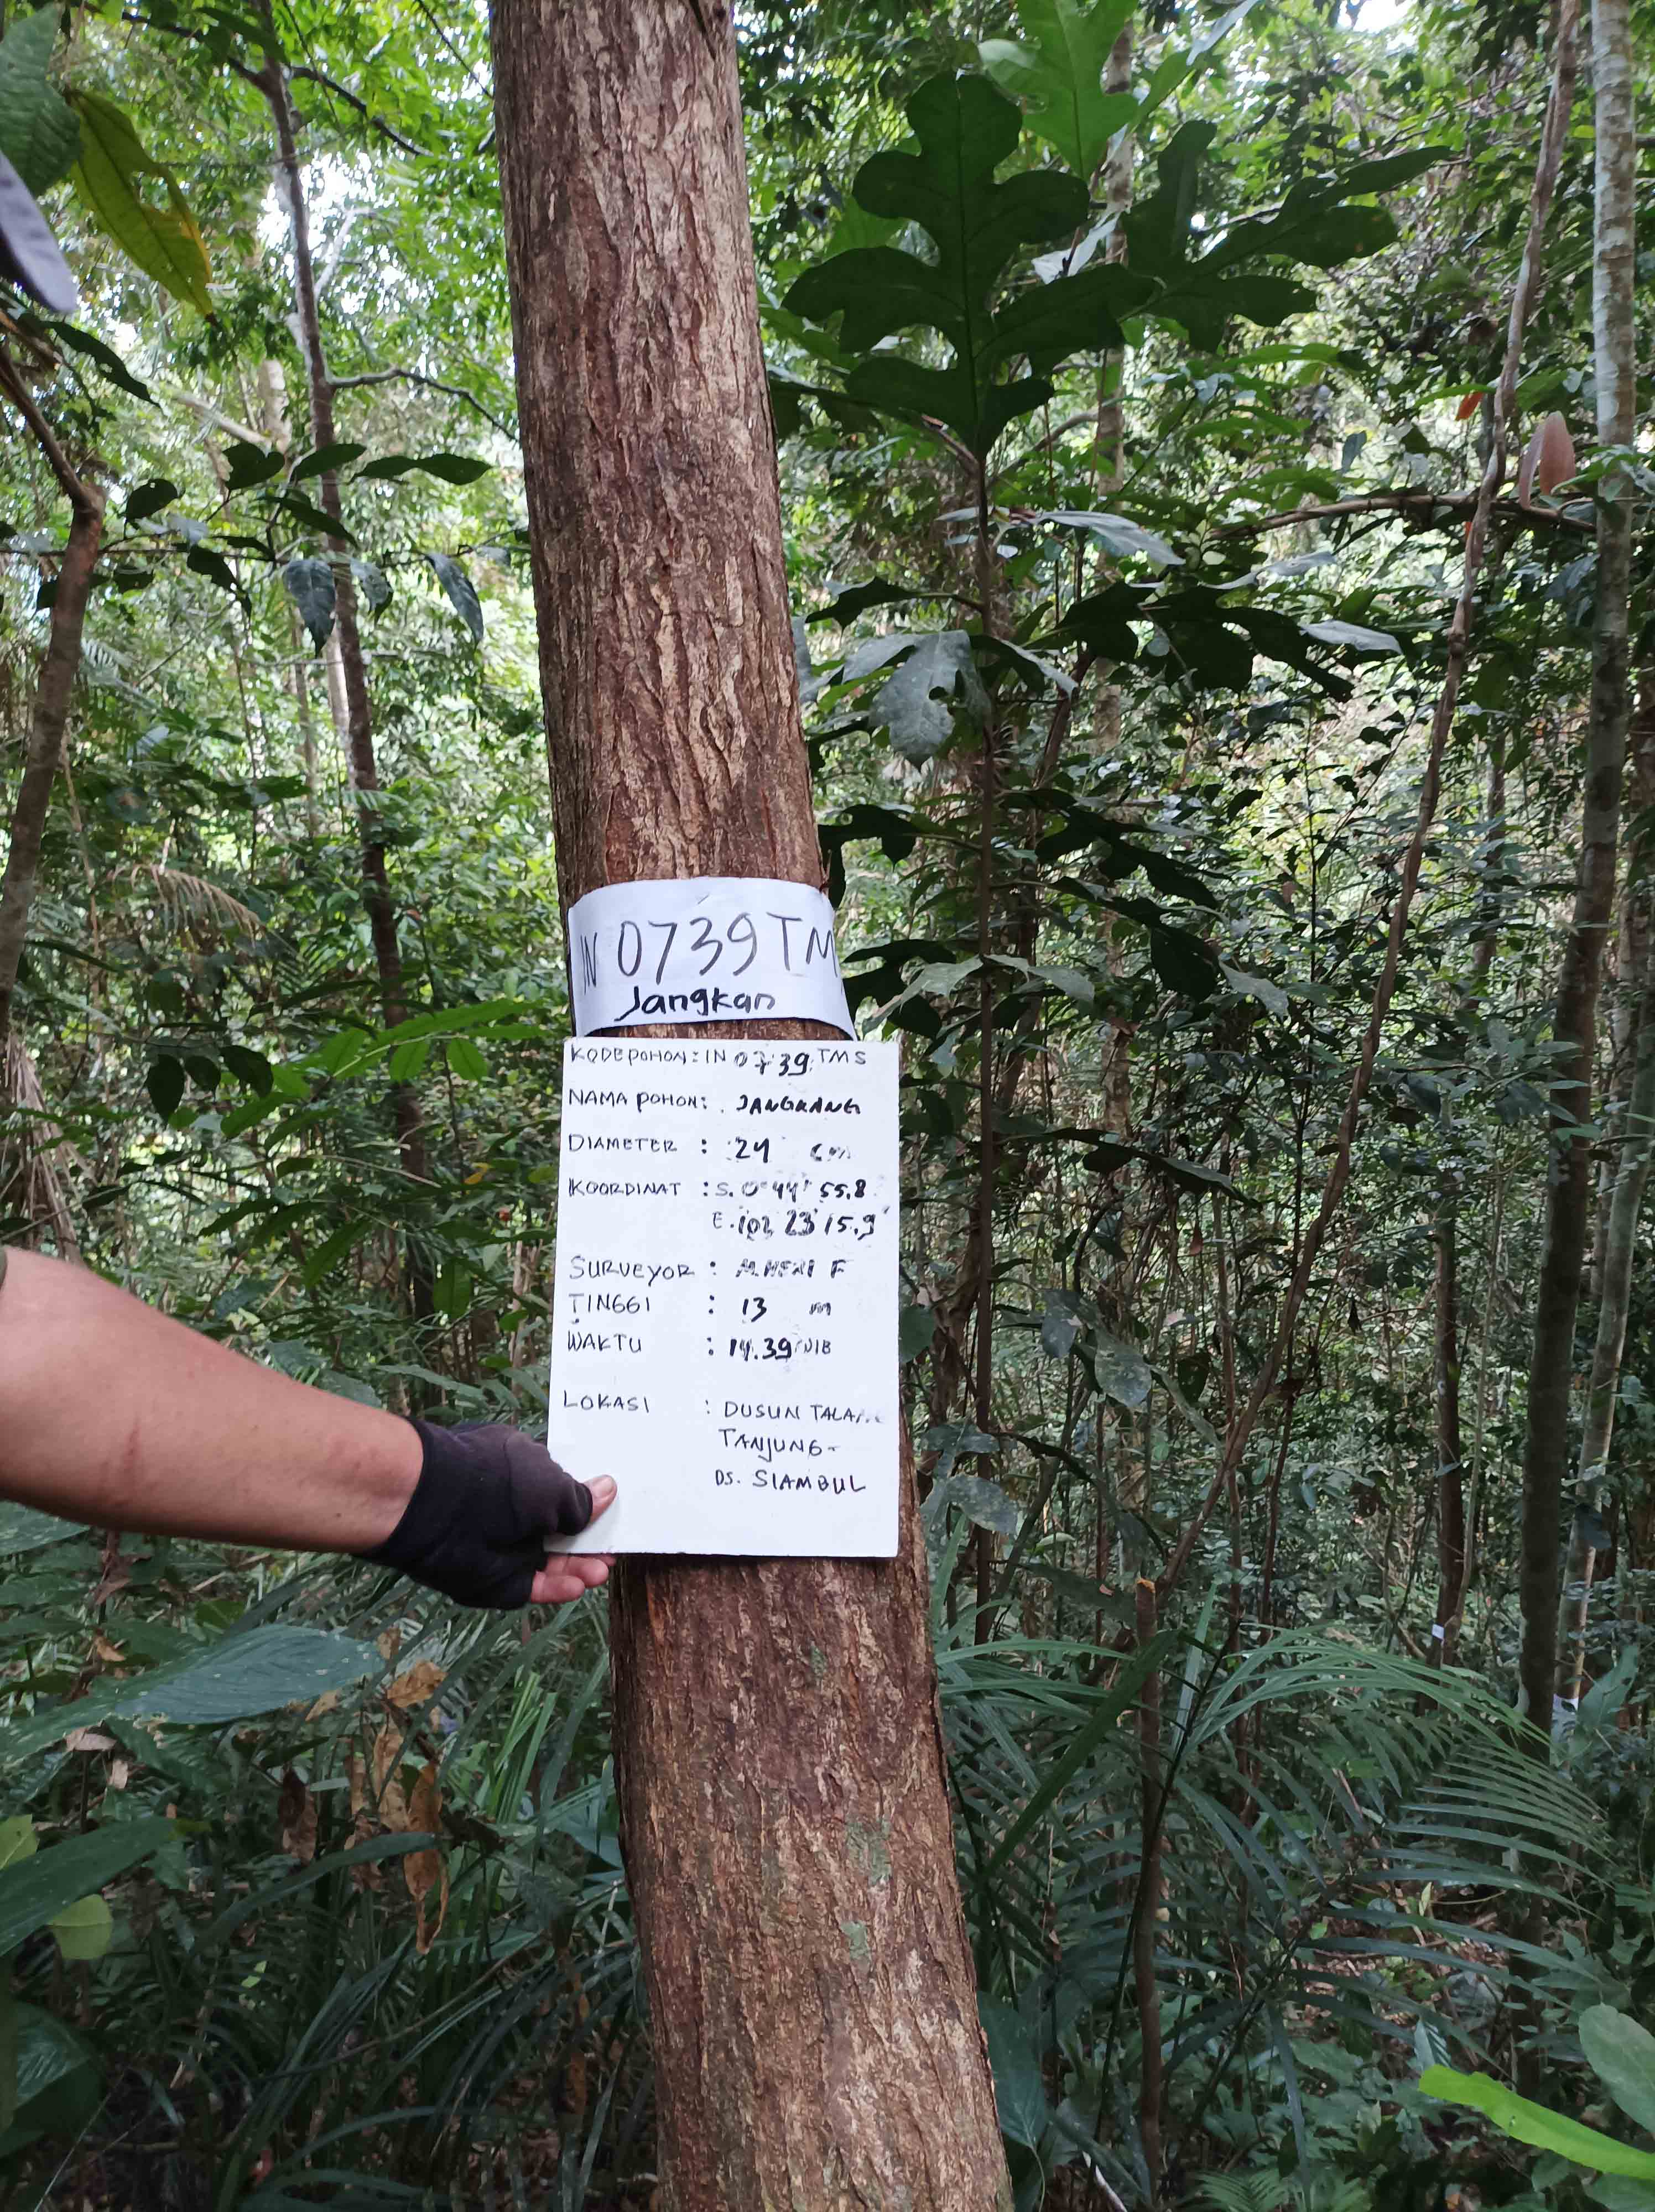 IN 0739 TM
Jangkan
KODE POHON : IN 0739 TMS
NAMA POHON : JANGKANG
DIAMETER : 24 cm
KOORDINAT : S. 0° 44' 55.8
E. 102 23' 15.9"
SURVEYOR : M. HERI F
TINGGI : 13 m
WAKTU : 14.39 WIB
LOKASI : DUSUN TALA
TANJUNG -
DS. SIAMBUL